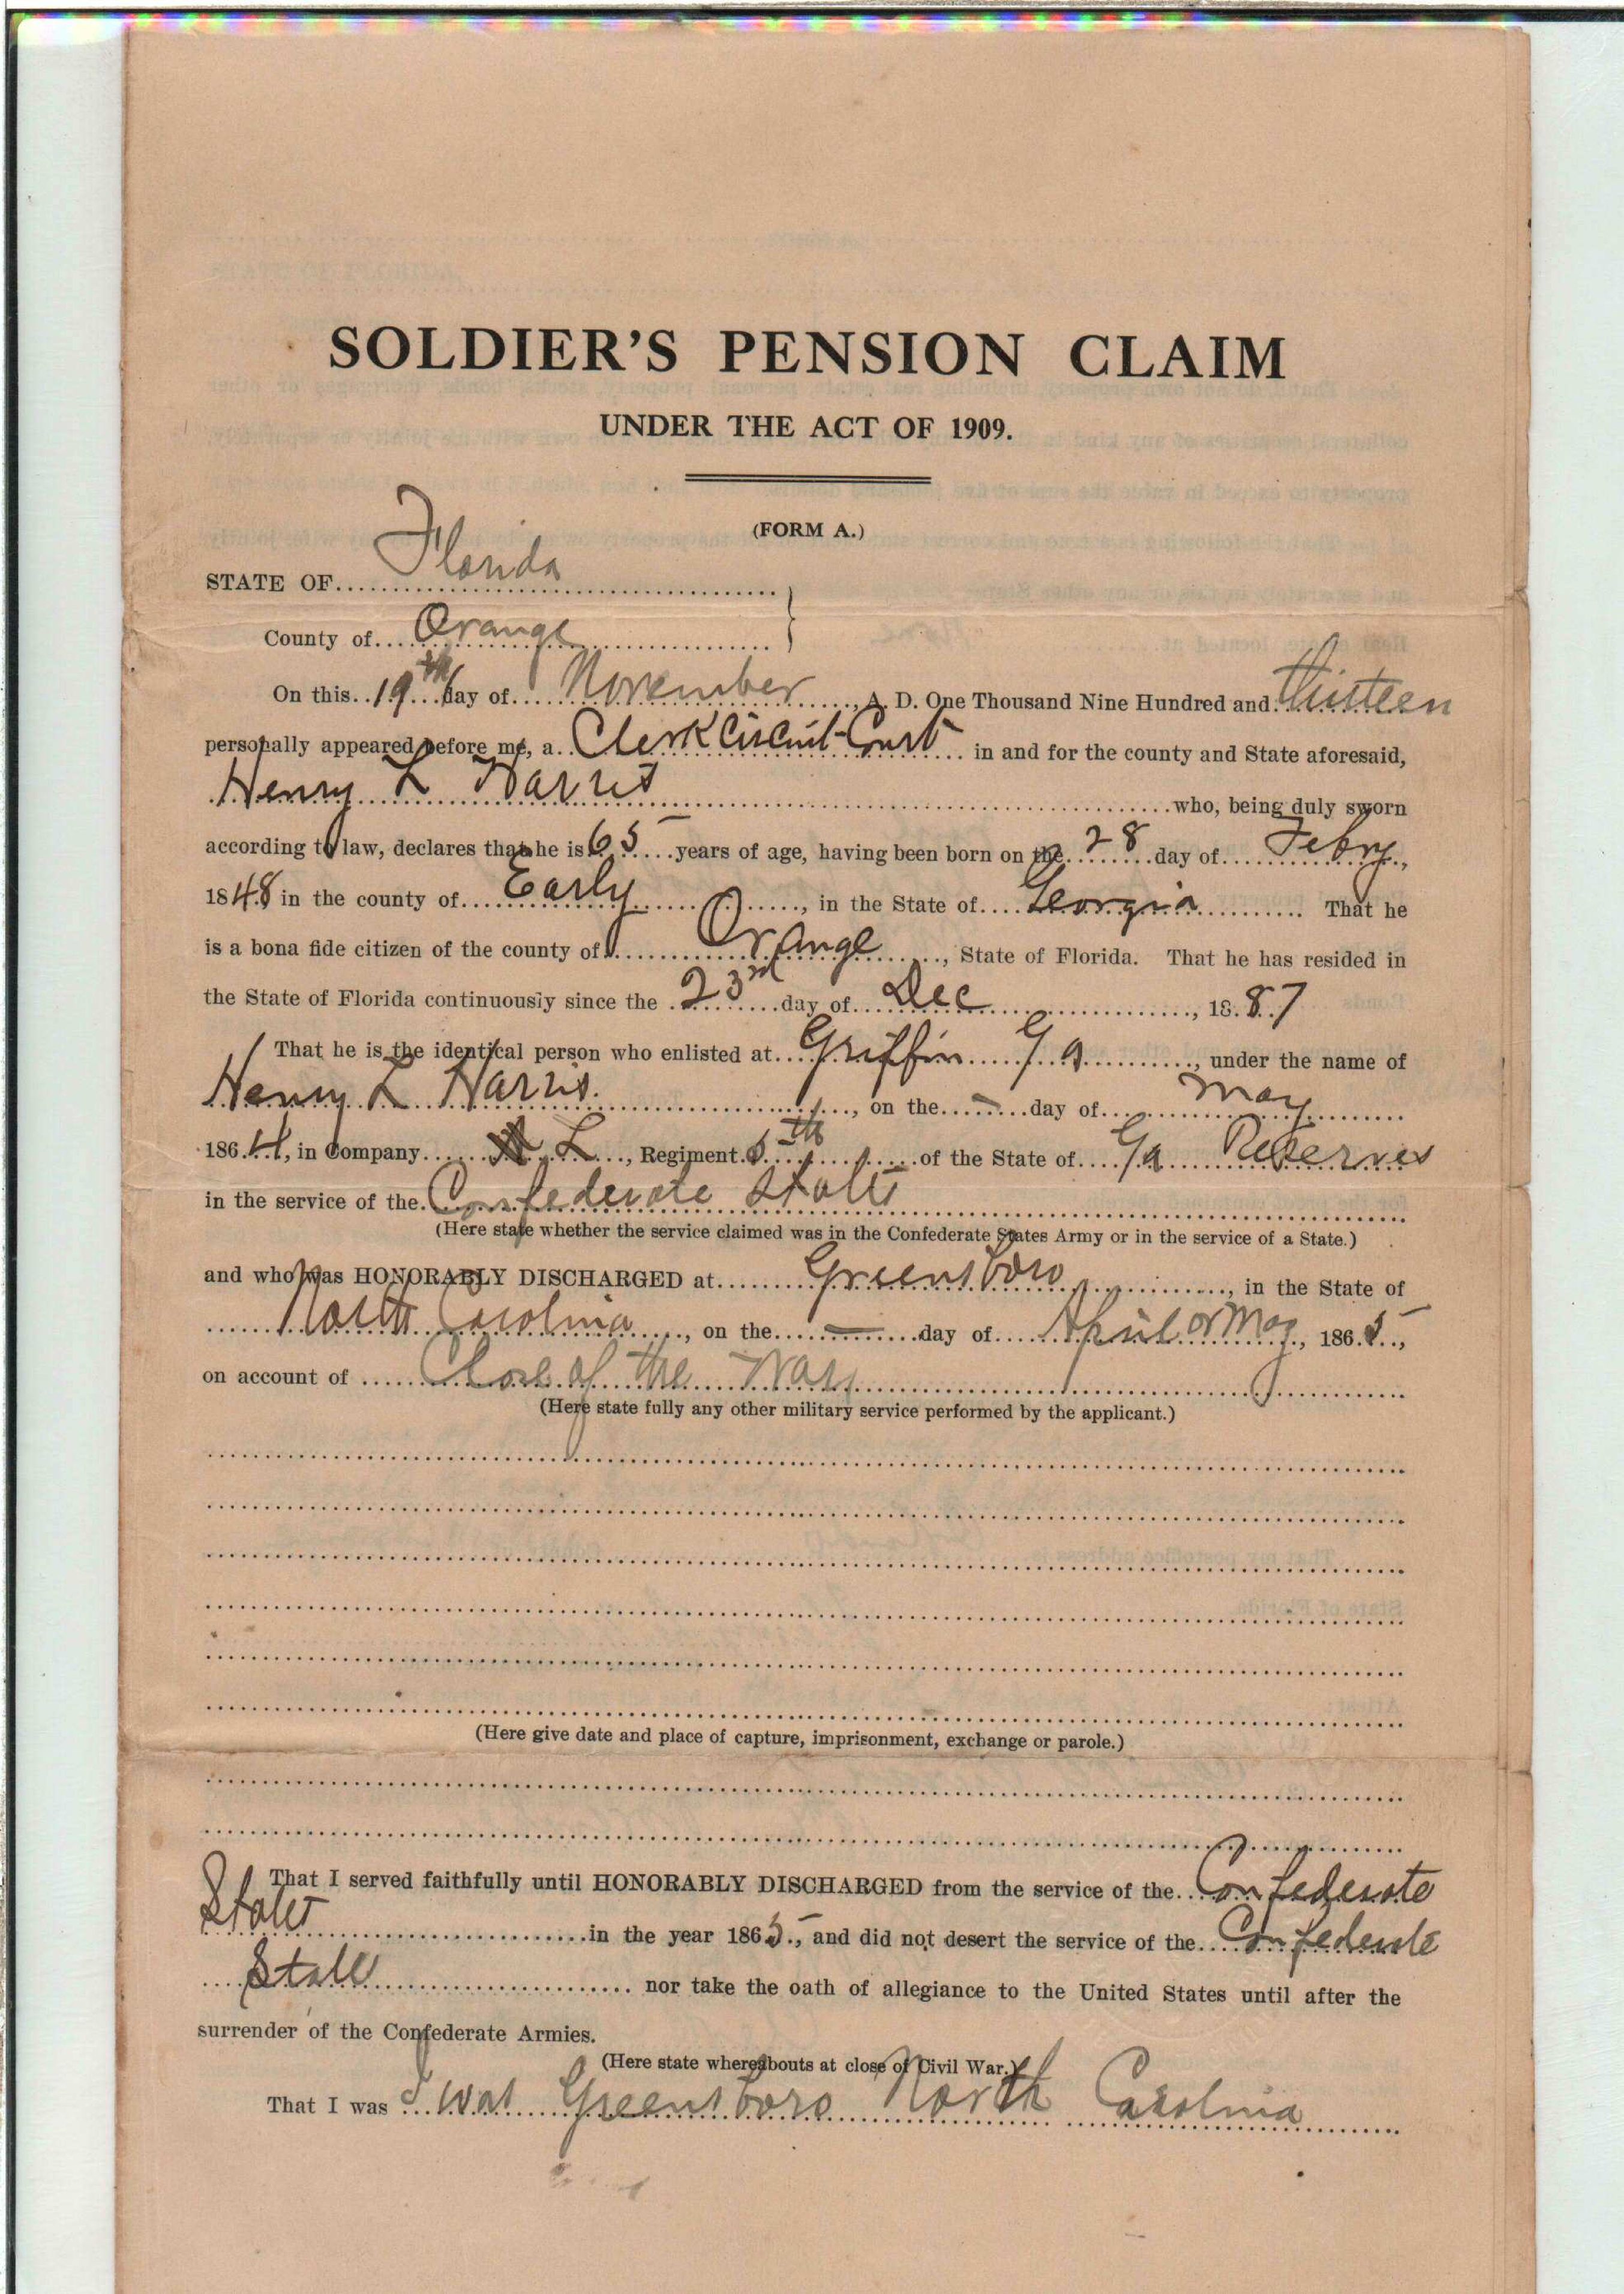 SOLDIER'S PENSION CLAIM
UNDER THE ACT OF 1909.
(FORM A.)
STATE OF Florida
County of Orange
On this 19th day of November, A. D. One Thousand Nine Hundred and thirteen
personally appeared before me, a Clerk Circuit Court in and for the county and State aforesaid,
Henry L Harris who, being duly sworn
according to law, declares that he is 65 years of age, having been born on the 28 day of Febry,
1848 in the county of Early, in the State of Georgia. That he
is a bona fide citizen of the county of Orange, State of Florida. That he has resided in
the State of Florida continuously since the 23rd day of Dec, 1887
That he is the identical person who enlisted at Griffin Ga, under the name of
Henry L Harris., on the — day of May
1864, in Company L, Regiment 5th of the State of Ga Reserves
in the service of the Confederate States
(Here state whether the service claimed was in the Confederate States Army or in the service of a State.)
and who was HONORABLY DISCHARGED at Greensboro, in the State of
North Carolina, on the — day of April or May, 1865,
on account of Close of the War
(Here state fully any other military service performed by the applicant.)
(Here give date and place of capture, imprisonment, exchange or parole.)
That I served faithfully until HONORABLY DISCHARGED from the service of the Confederate
States in the year 1865, and did not desert the service of the Confederate
States nor take the oath of allegiance to the United States until after the
surrender of the Confederate Armies.
(Here state whereabouts at close of Civil War.)
That I was I was Greensboro North Carolina